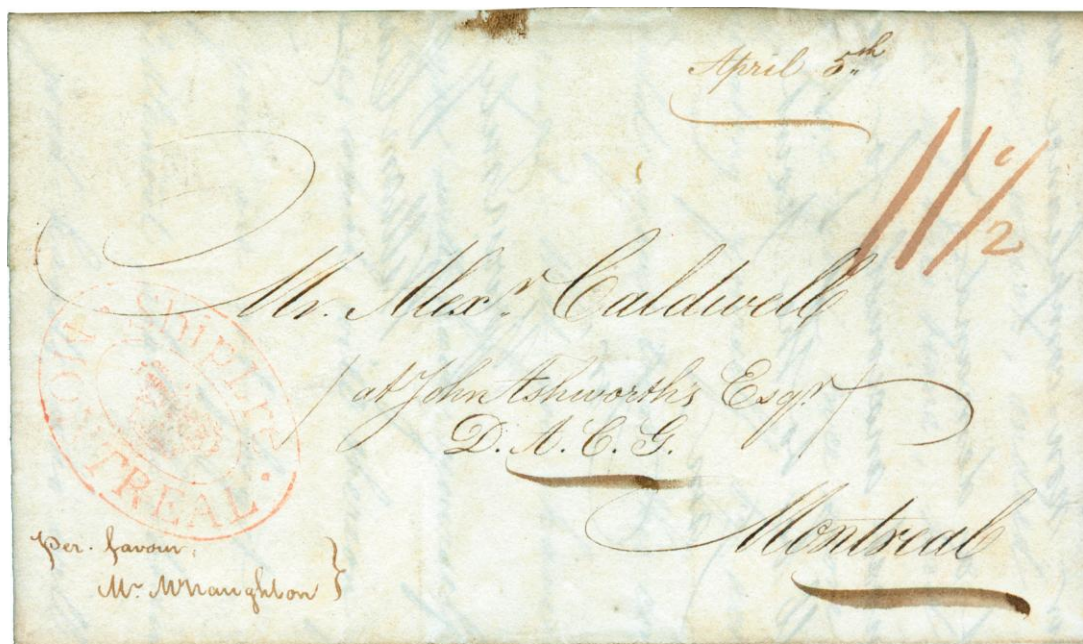 April 5th
11 1/2
Mr. Alexr. Caldwell
at John Ashworth's Esqr.
D. A. C. G.
Montreal
MONTREAL
per. favour,
Mr. Wraughton